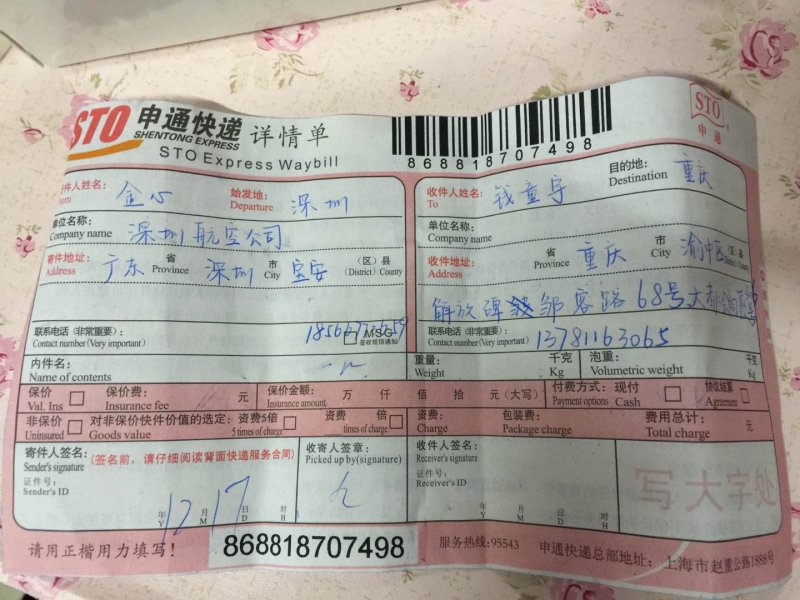 STO 申通快递 详情单
SHENTONG EXPRESS
STO Express Waybill
868818707498
STO
申通
件人姓名: 金心 始发地: 深圳
From Departure
收件人姓名: 钱童宇 目的地: 重庆
To Destination
单位名称: 深圳航空公司
Company name
单位名称:
Company name
寄件地址: 广东 省 深圳 市 宝安 (区)县
Address Province City (District) County
收件地址: 重庆 省 市 渝中区 (区)县
Address Province City
解放碑 邹容路68号大都
联系电话(非常重要):
Contact number(Very important)
MSG
签收短信通知
联系电话(非常重要): 13781163065
Contact number(Very important)
内件名:
Name of contents
重量: 千克 泡重: 千克
Weight Kg Volumetric weight Kg
保价 保价费: 元 保价金额: 万 仟 佰 拾 元(大写)
Val. Ins Insurance fee Insurance amount
付费方式: 现付 协议结算
Payment options Cash Agreement
非保价 对非保价快件价值的选定: 资费5倍 资费 倍
Uninsured Goods value 5 times of charge times of charge
资费: 包装费: 费用总计: 元
Charge Package charge Total charge
寄件人签名: (签名前,请仔细阅读背面快递服务合同)
Sender's signature
证件号:
Sender's ID
收寄人签章:
Picked up by(signature)
收件人签名:
Receiver's signature
证件号:
Receiver's ID
写大字处
年 12 月 17 日 时
Y M D H
年 月 日 时
Y M D H
请用正楷用力填写!
868818707498
服务热线:95543 申通快递总部地址:上海市赵重公路1888号